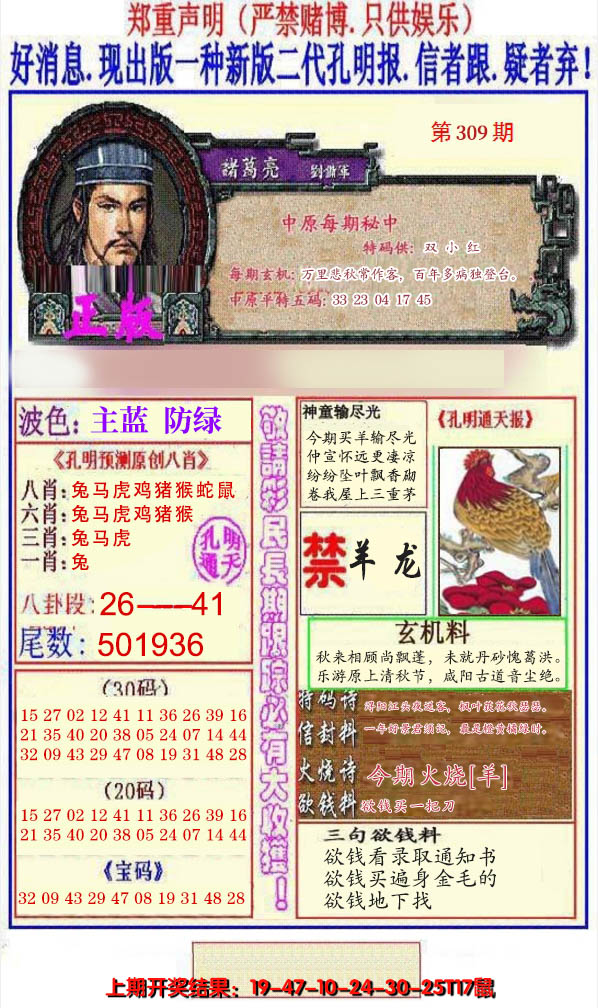 郑重声明（严禁赌博.只供娱乐）
好消息.现出版一种新版二代孔明报.信者跟.疑者弃！
第309期
諸葛亮 劉備軍
中原每期秘中
特码供：双小红
每期玄机：万里悲秋常作客，百年多病独登台。
中原平特五码：33 23 04 17 45
正版
波色：主蓝 防绿
《孔明预测原创八肖》
八肖：兔马虎鸡猪猴蛇鼠
六肖：兔马虎鸡猪猴
三肖：兔马虎
一肖：兔
孔明
通天
八卦段：26——41
尾数：501936
（30码）
15 27 02 12 41 11 36 26 39 16
21 35 40 20 38 05 24 07 14 44
32 09 43 29 47 08 19 31 48 28
（20码）
15 27 02 12 41 11 36 26 39 16
21 35 40 20 38 05 24 07 14 44
《宝码》
32 09 43 29 47 08 19 31 48 28
敬請彩民長期跟踪必有大收獲！
神童输尽光
今期买羊输尽光
仲宣怀远更凄凉
纷纷坠叶飘香砌
卷我屋上三重茅
《孔明通天报》
禁羊龙
玄机料
秋来相顾尚飘蓬，未就丹砂愧葛洪。
乐游原上清秋节，咸阳古道音尘绝。
特码诗 浔阳江头夜送客，枫叶荻花秋瑟瑟。
信封料 一年好景君须记，最是橙黄橘绿时。
火烧诗 今期火烧[羊]
欲钱料 欲钱买一把刀
三句欲钱料
欲钱看录取通知书
欲钱买遍身金毛的
欲钱地下找
上期开奖结果：19-47-10-24-30-25T17鼠